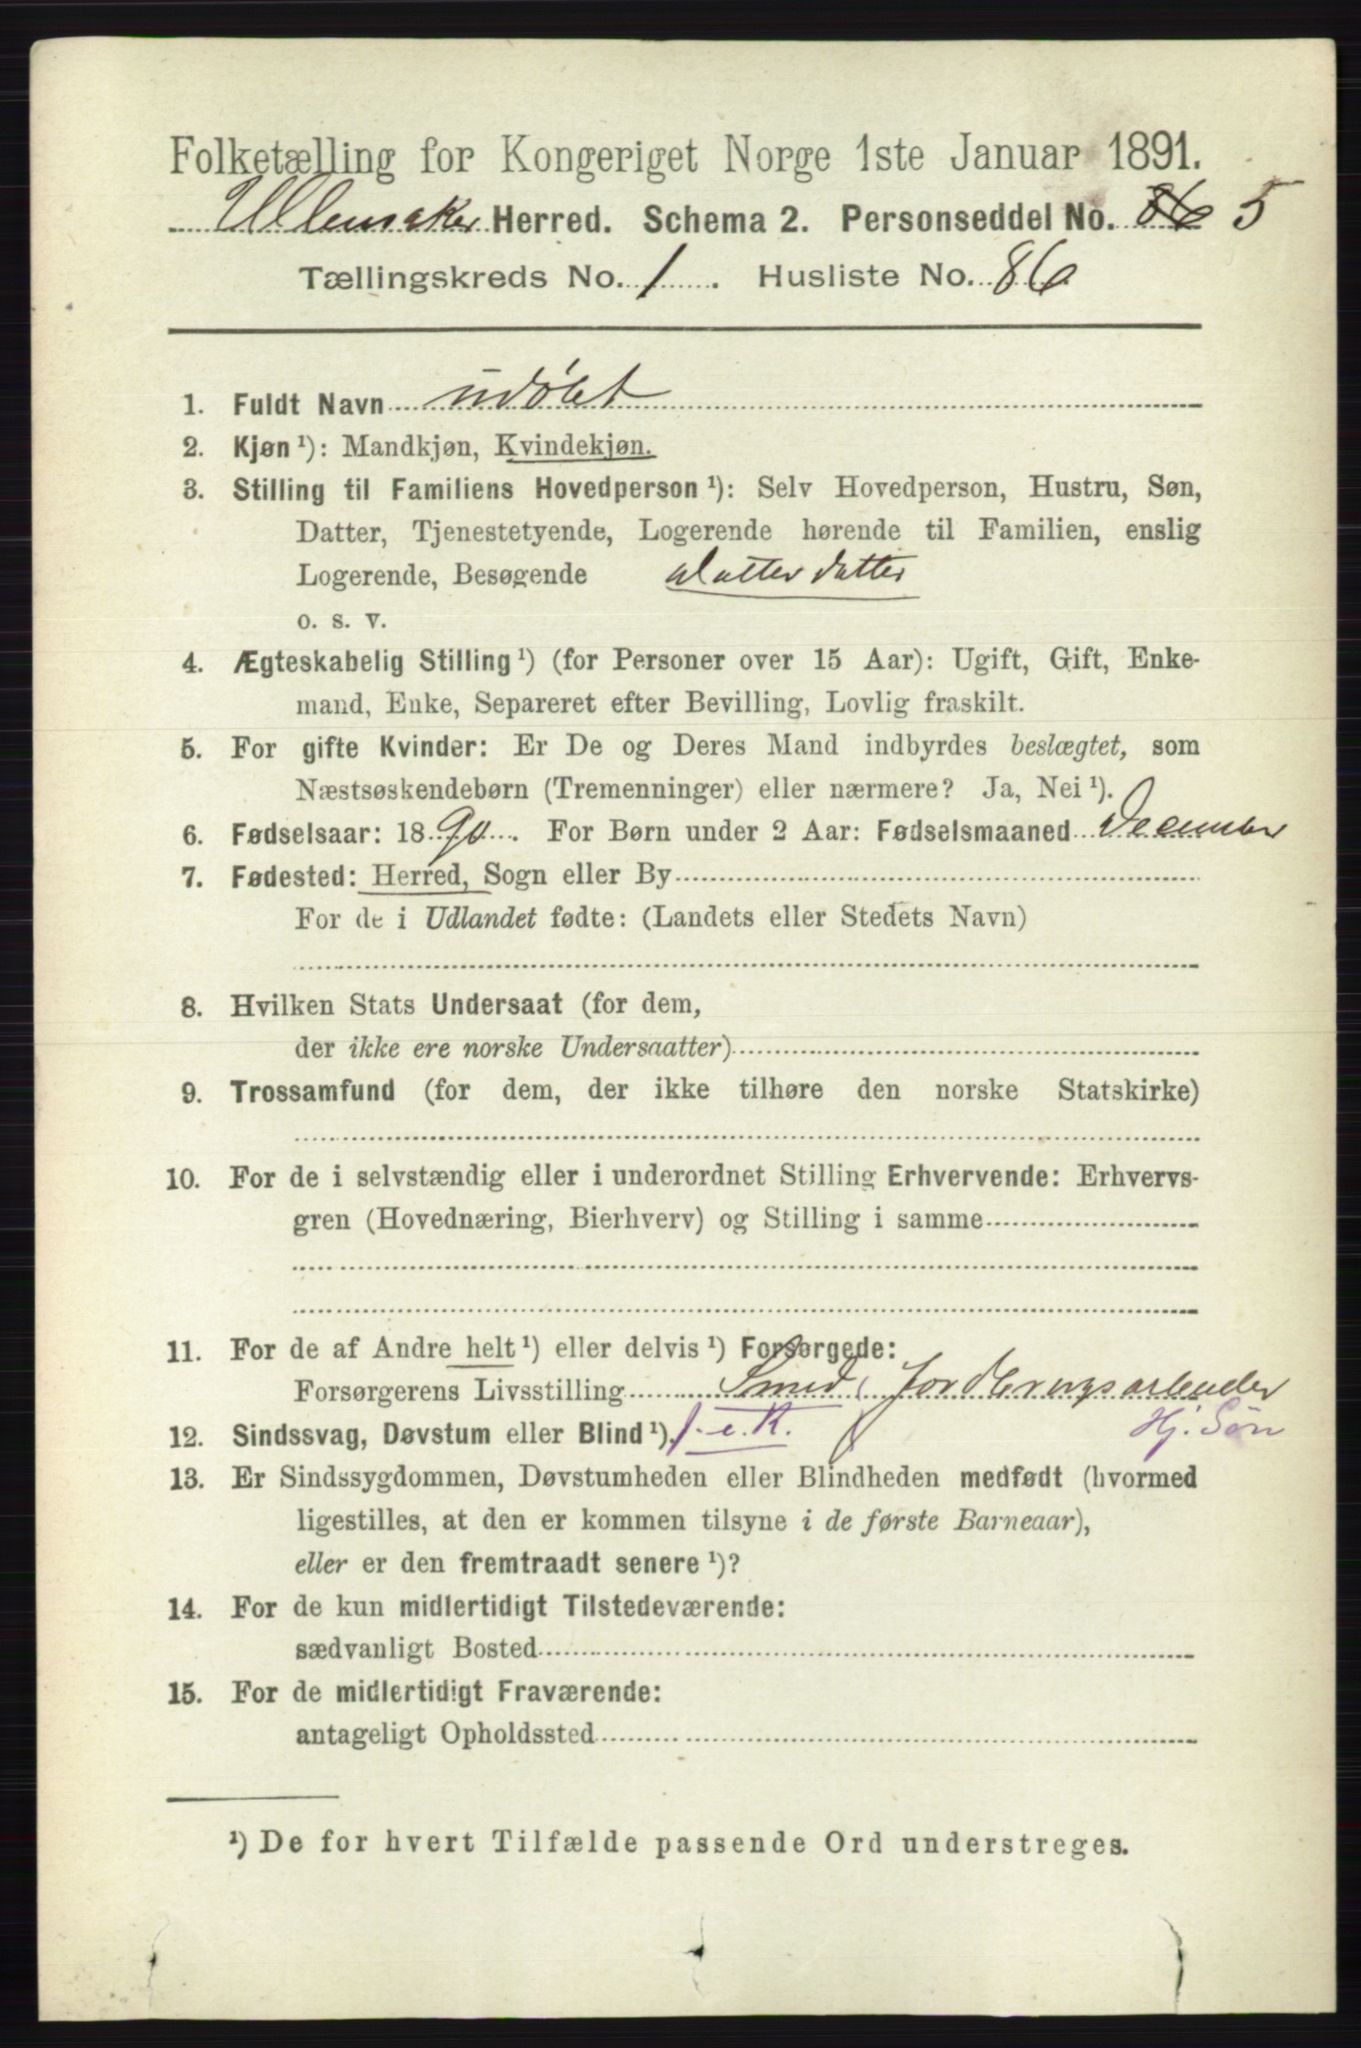 Folketælling for Kongeriget Norge 1ste Januar 1891.
Ullensaker Herred. Schema 2. Personseddel No. 86 5
Tællingskreds No. 1. Husliste No. 86
1. Fuldt Navn udøbt
2. Kjøn ¹): Mandkjøn, Kvindekjøn.
3. Stilling til Familiens Hovedperson ¹): Selv Hovedperson, Hustru, Søn,
Datter, Tjenestetyende, Logerende hørende til Familien, enslig
Logerende, Besøgende datterdatter
o. s. v.
4. Ægteskabelig Stilling ¹) (for Personer over 15 Aar): Ugift, Gift, Enke-
mand, Enke, Separeret efter Bevilling, Lovlig fraskilt.
5. For gifte Kvinder: Er De og Deres Mand indbyrdes beslægtet, som
Næstsøskendebørn (Tremenninger) eller nærmere? Ja, Nei ¹).
6. Fødselsaar: 1890. For Børn under 2 Aar: Fødselsmaaned December
7. Fødested: Herred, Sogn eller By
For de i Udlandet fødte: (Landets eller Stedets Navn)
8. Hvilken Stats Undersaat (for dem,
der ikke ere norske Undersaatter)
9. Trossamfund (for dem, der ikke tilhøre den norske Statskirke)
10. For de i selvstændig eller i underordnet Stilling Erhvervende: Erhvervs-
gren (Hovednæring, Bierhverv) og Stilling i samme
11. For de af Andre helt ¹) eller delvis ¹) Forsørgede:
Forsørgerens Livsstilling Smed, Jordbrugsarbeider
12. Sindssvag, Døvstum eller Blind ¹). f. e. K. Hj. Søn
13. Er Sindssygdommen, Døvstumheden eller Blindheden medfødt (hvormed
ligestilles, at den er kommen tilsyne i de første Barneaar),
eller er den fremtraadt senere ¹)?
14. For de kun midlertidigt Tilstedeværende:
sædvanligt Bosted
15. For de midlertidigt Fraværende:
antageligt Opholdssted
¹) De for hvert Tilfælde passende Ord understreges.